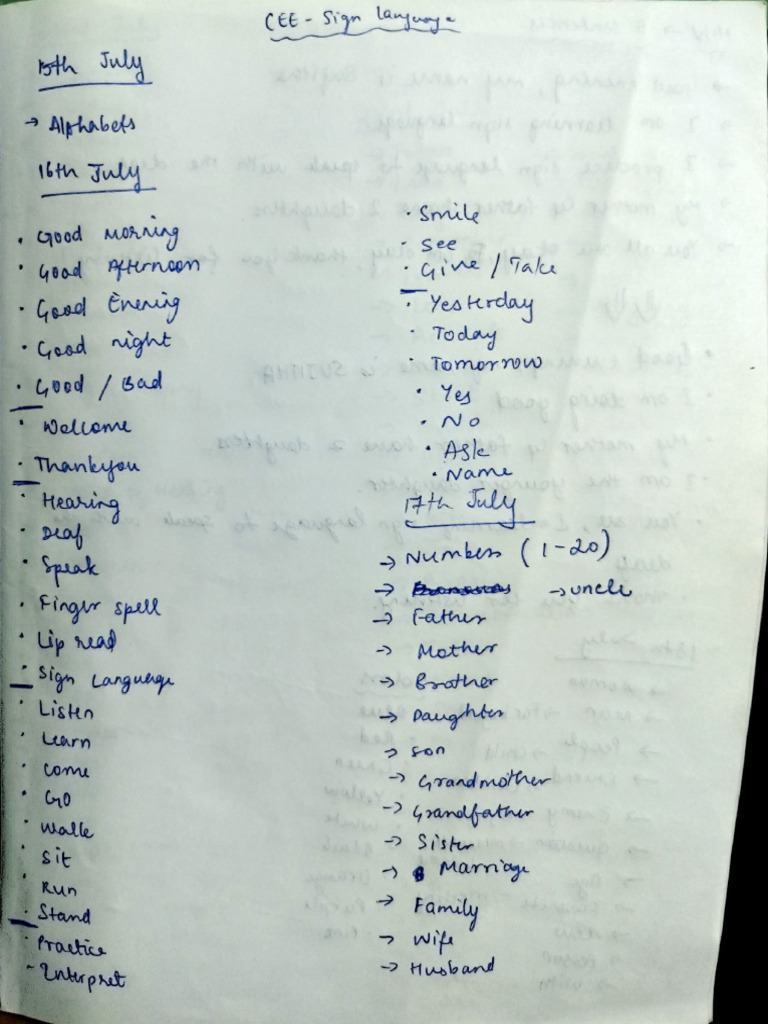 CEE - Sign Language
15th July
→ Alphabets
16th July
• Good Morning
• Good Afternoon
• Good Evening
• Good night
• Good / Bad
• Welcome
• Thankyou
• Hearing
• Deaf
• Speak
• Finger spell
• Lip read
• Sign Language
• Listen
• Learn
• Come
• Go
• Walk
• Sit
• Run
• Stand
- Practice
- Interpret
• Smile
• See
• Give / Take
• Yesterday
• Today
• Tomorrow
• Yes
• No
• Ask
• Name
17th July
→ Numbers (1-20)
→ → uncle
→ Father
→ Mother
→ Brother
→ Daughter
→ son
→ Grandmother
→ Grandfather
→ Sister
→ Marriage
→ Family
→ Wife
→ Husband